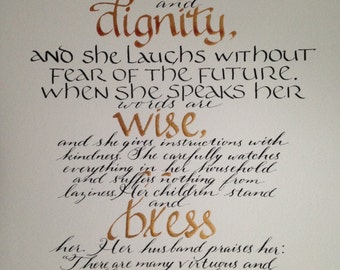 and
dignity,
AND SHE LAUGHS WITHOUT
FEAR OF THE FUTURE.
WHEN SHE SPEAKS HER
words are
wise,
and she gives instructions with
kindness. She carefully watches
everything in her household
and suffers nothing from
laziness. Her children stand
and
bless
her. Her husband praises her:
"There are many virtuous and